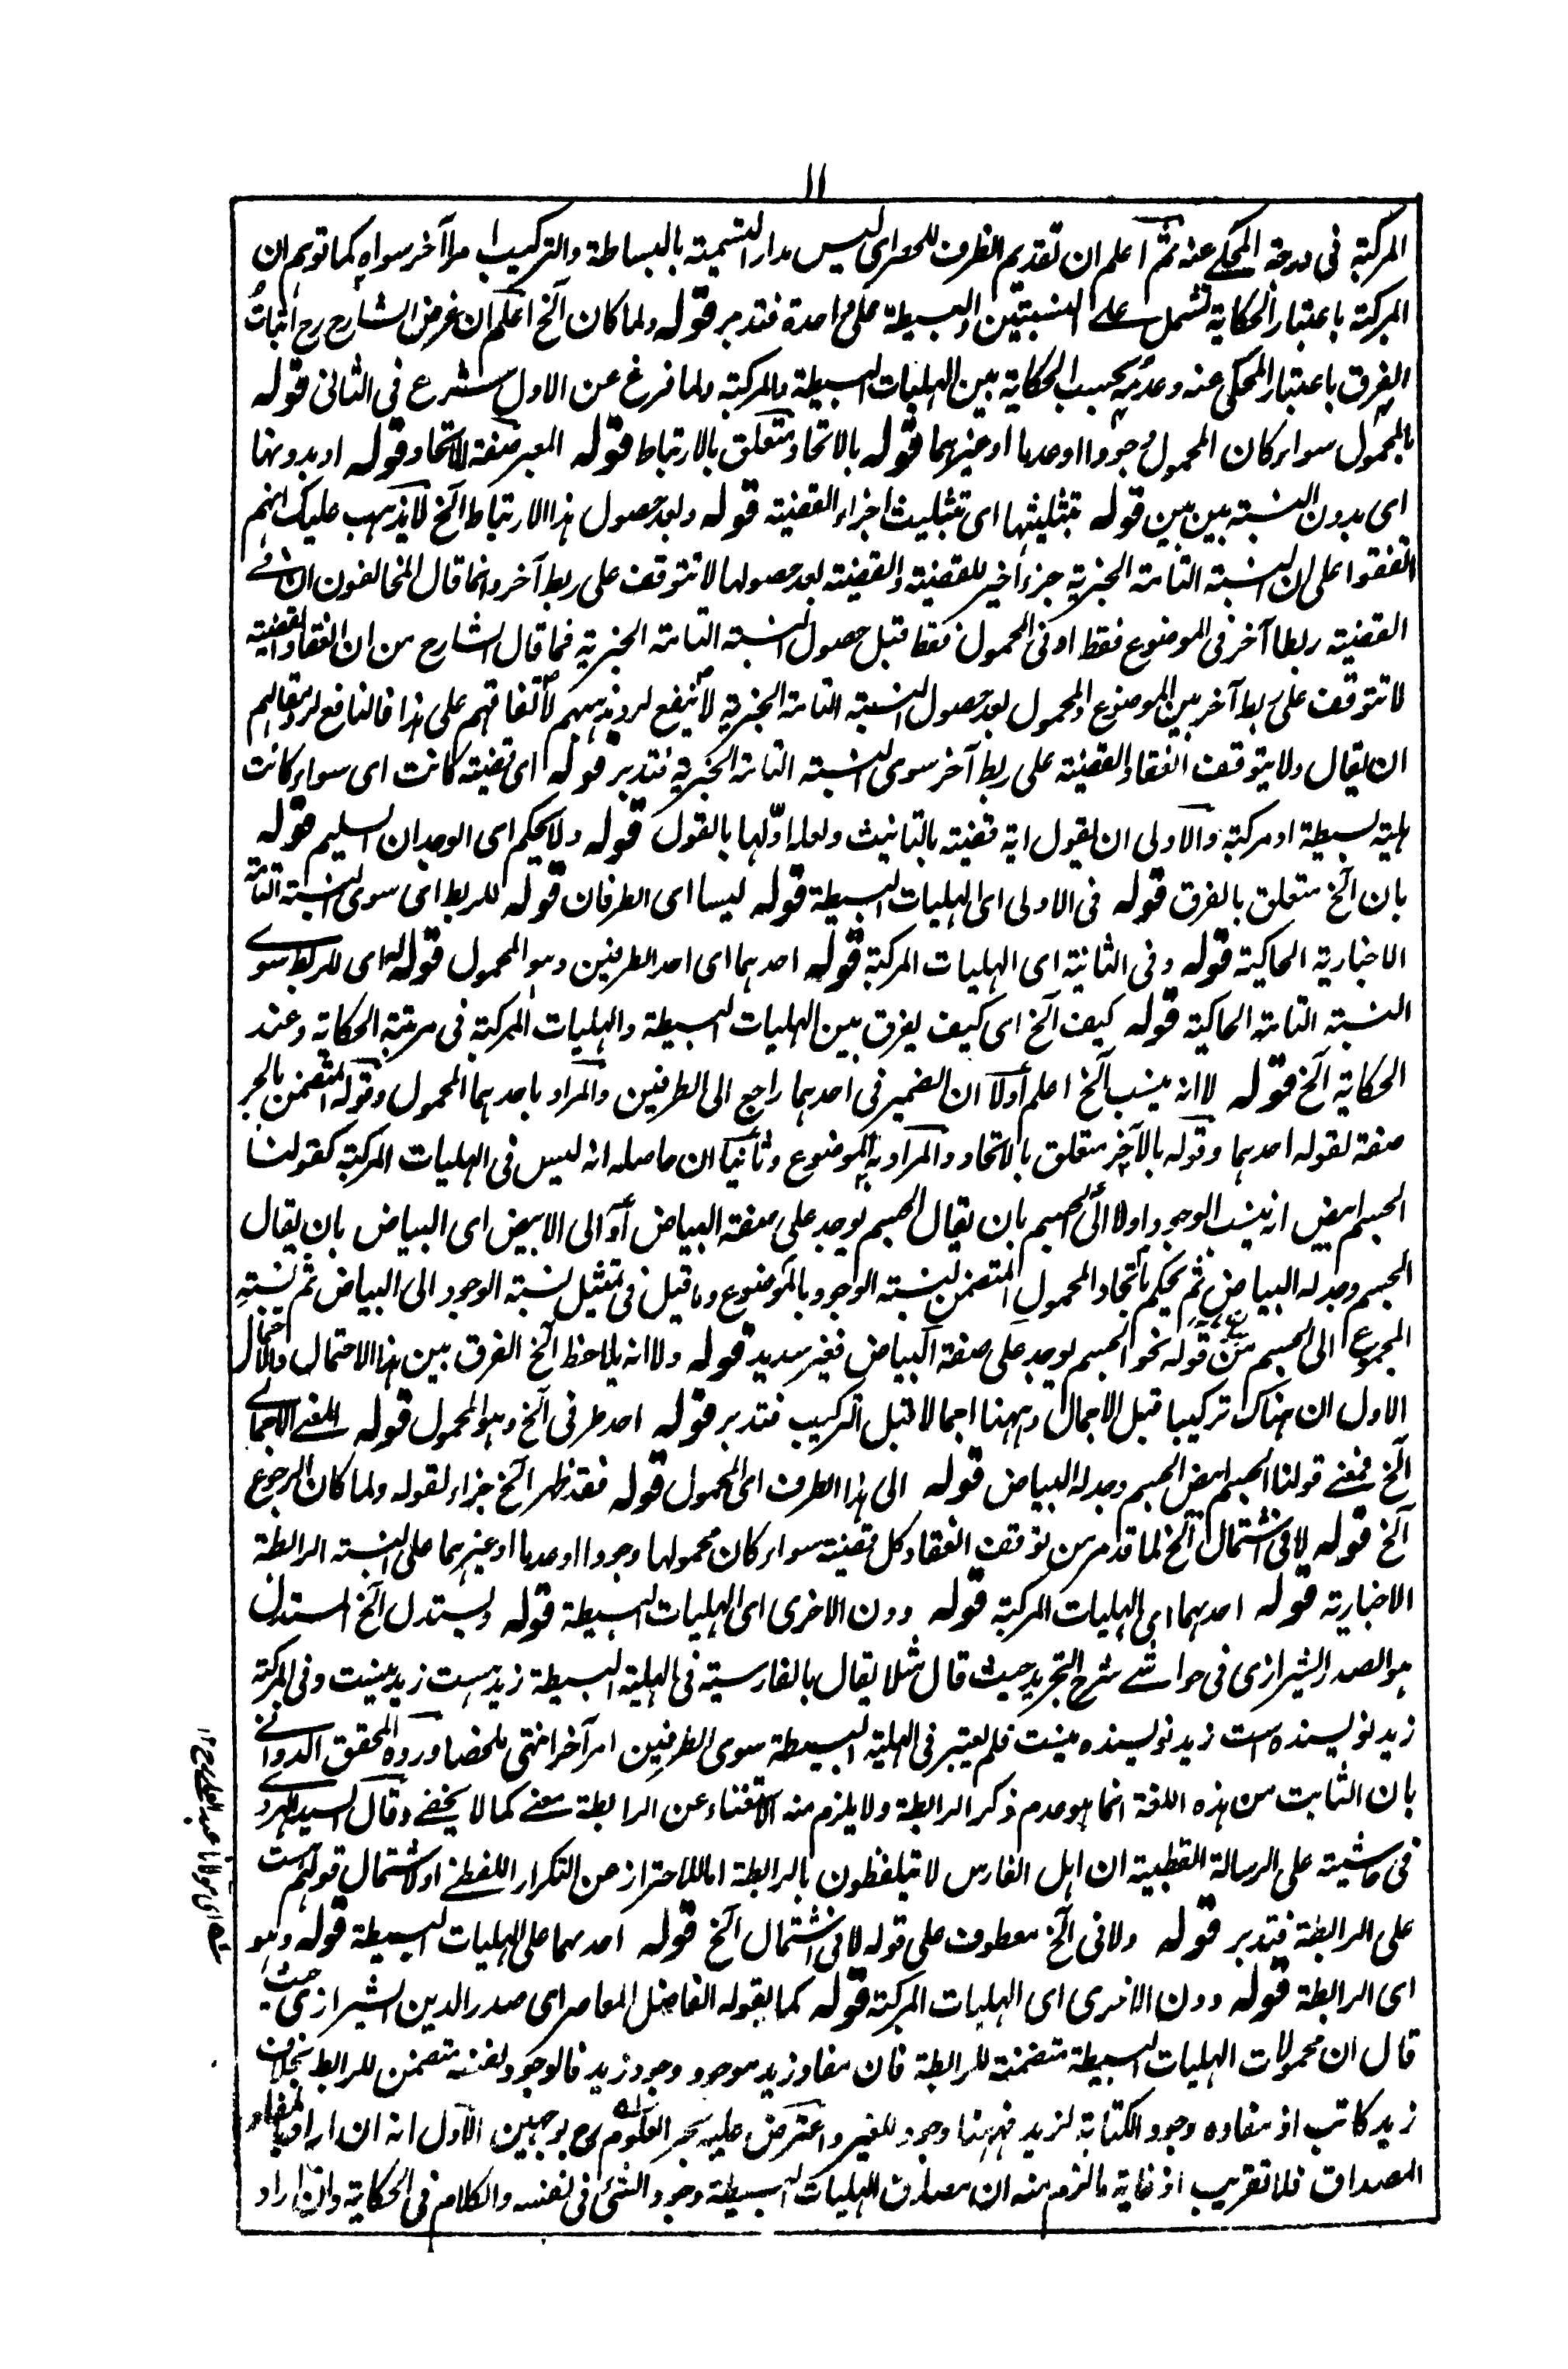 ١١
المركبة فى درجة المحكے عنه ثم اعلم ان تقديم الظرف للحصراى ليس مدار التسمية بالبساطة والتركيب امرا آخر سواه كما توهم ان
المركبة باعتبار الحكاية تشمل علے النسبتين والبسيطة على واحدة فتدبر قوله ولما كان الخ اعلم ان غرض الشارح رح اثبات
الفرق باعتبار المحكى عنه وعدمه بحسب الحكاية بين الهليات البسيطة والمركبة ولما فرغ عن الاول شرع فى الثانى قوله
بالمحمول سواء كان المحمول وجودا او عدما او غيرهما قوله بالاتحاد متعلق بالارتباط قوله المعبر صفة للاتحاد قوله او بدونها
اى بدون النسبة بين بين قوله بتثليثها اى بتثليث اجزاء القضية قوله وبعد حصول هذا الارتباط الخ لا يذهب عليك انهم
اتفقوا على ان النسبة التامة الخبرية جزء اخير للقضية والقضية بعد حصولها لا تتوقف على ربط آخر وانما قال المخالفون ان فے
القضية ربطا آخر فى الموضوع فقط او فى المحمول فقط قبل حصول النسبة التامة الخبرية فما قال الشارح من ان انعقاد القضية
لا تتوقف على ربط آخر بين الموضوع والمحمول بعد حصول النسبة التامة الخبرية لا ينفع لرد مذهبهم لاتفاقهم على هذا فالنافع لرد مقالهم
ان يقال ولا يتوقف انعقاد القضية على ربط آخر سوى النسبة التامة الخبرية فتدبر قوله اى قضية كانت اى سواء كانت
هلية بسيطة او مركبة والاولى ان يقول اية قضية بالتانيث ولعله اوّلها بالقول قوله ولا يحكم اى الوجدان السليم قوله
بان الخ متعلق بالفرق قوله فى الاولى اى الهليات البسيطة قوله ليسا اى الطرفان قوله للربط اى سوى النسبة التامة
الاخبارية الحاكية قوله وفى الثانية اى الهليات المركبة قوله احدهما اى احد الطرفين وهو المحمول قوله له اى للربط سوے
النسبة التامة الحاكية قوله كيف الخ اى كيف يفرق بين الهليات البسيطة والهليات المركبة فى مرتبة الحكاية وعند
الحكاية الخ قوله لا انه ينسب الخ اعلم أولا ان الضمير فى احدهما راجع الى الطرفين والمراد باحدهما المحمول وقوله المتضمن بالجر
صفة لقوله احدهما وقوله بالآخر متعلق بالاتحاد والمراد به الموضوع وثانيا ان حاصله انه ليس فى الهليات المركبة كقولنا
الجسم ابيض انه ينسب الوجود اولا الى الجسم بان يقال الجسم يوجد على صفة البياض أو الى الابيض اى البياض بان يقال
الجسم وجد له البياض ثم يحكم باتحاد المحمول المتضمن لنسبة الوجود بالموضوع وما قيل فى تمثيل نسبة الوجود الى البياض ثم نسبة
المجموع الى الجسم من قوله نحو الجسم يوجد على صفة البياض فغير سديد قوله ولا انه يلاحظ الخ الفرق بين هذا الاحتمال والاحتمال
الاول ان هناك تركيبا قبل الاجمال وههنا اجمالا قبل التركيب فتدبر قوله احد طرفى الخ وهو المحمول قوله المعنے الاجمالے
الخ فمعنے قولنا الجسم ابيض الجسم وجد له البياض قوله الى هذا الطرف اى المحمول قوله فقد ظهر الخ جزاء لقوله ولما كان المرجوع
الخ قوله لا فى اشتمال الخ لما قد مر من توقف انعقاد كل قضية سواء كان محمولها وجودا او عدما او غيرهما على النسبة الرابطة
الاخبارية قوله احدهما اى الهليات المركبة قوله دون الاخرى اى الهليات البسيطة قوله ويستدل الخ المستدل
هو الصدر الشيرازى فى حواشے شرح التجريد حيث قال مثلا يقال بالفارسية فى الهلية البسيطة زيد هست زيد نيست وفى المركبة
زيد نويسنده است زيد نويسنده نيست فلم يعتبر فى الهلية البسيطة سوى الطرفين امرآ خر انتهى ملخصا ورده المحقق الدوانے
بان الثابت من هذه اللغة انما هو عدم ذكر الرابطة ولا يلزم منه الاستغناء عن الرابطة معنے كما لا يخفے وقال السيد الهروے
فى حاشيته على الرسالة القطبية ان اهل الفارس لا يتلفظون بالرابطة اما للاحتراز عن التكرار اللفظے او لاشتمال قولهم هست
على الرابطة فتدبر قوله ولا فى الخ معطوف على قوله لا فى اشتمال الخ قوله احدهما على الهليات البسيطة قوله وهو
اى الرابطة قوله دون الاخرى اى الهليات المركبة قوله كما يقوله الفاضل المعاصر اى صدر الدين الشيرازى حيث
قال ان محمولات الهليات البسيطة متضمنة للرابطة فان مفاد زيد موجود وجود زيد فالوجود لنفسه متضمن للرابط بخلاف
زيد كاتب اذ مفاده وجود الكتابة لزيد فههنا وجود للغير واعترض عليه بحر العلوم رح بوجهين الاول انه ان اراد بالمفاد
المصداق فلا تقريب اذ غاية ما لزم منه ان مصداق الهليات البسيطة وجود الشئ فى نفسه والكلام فى الحكاية وان اراد
اى مولانا عبد العلى رح ١٢